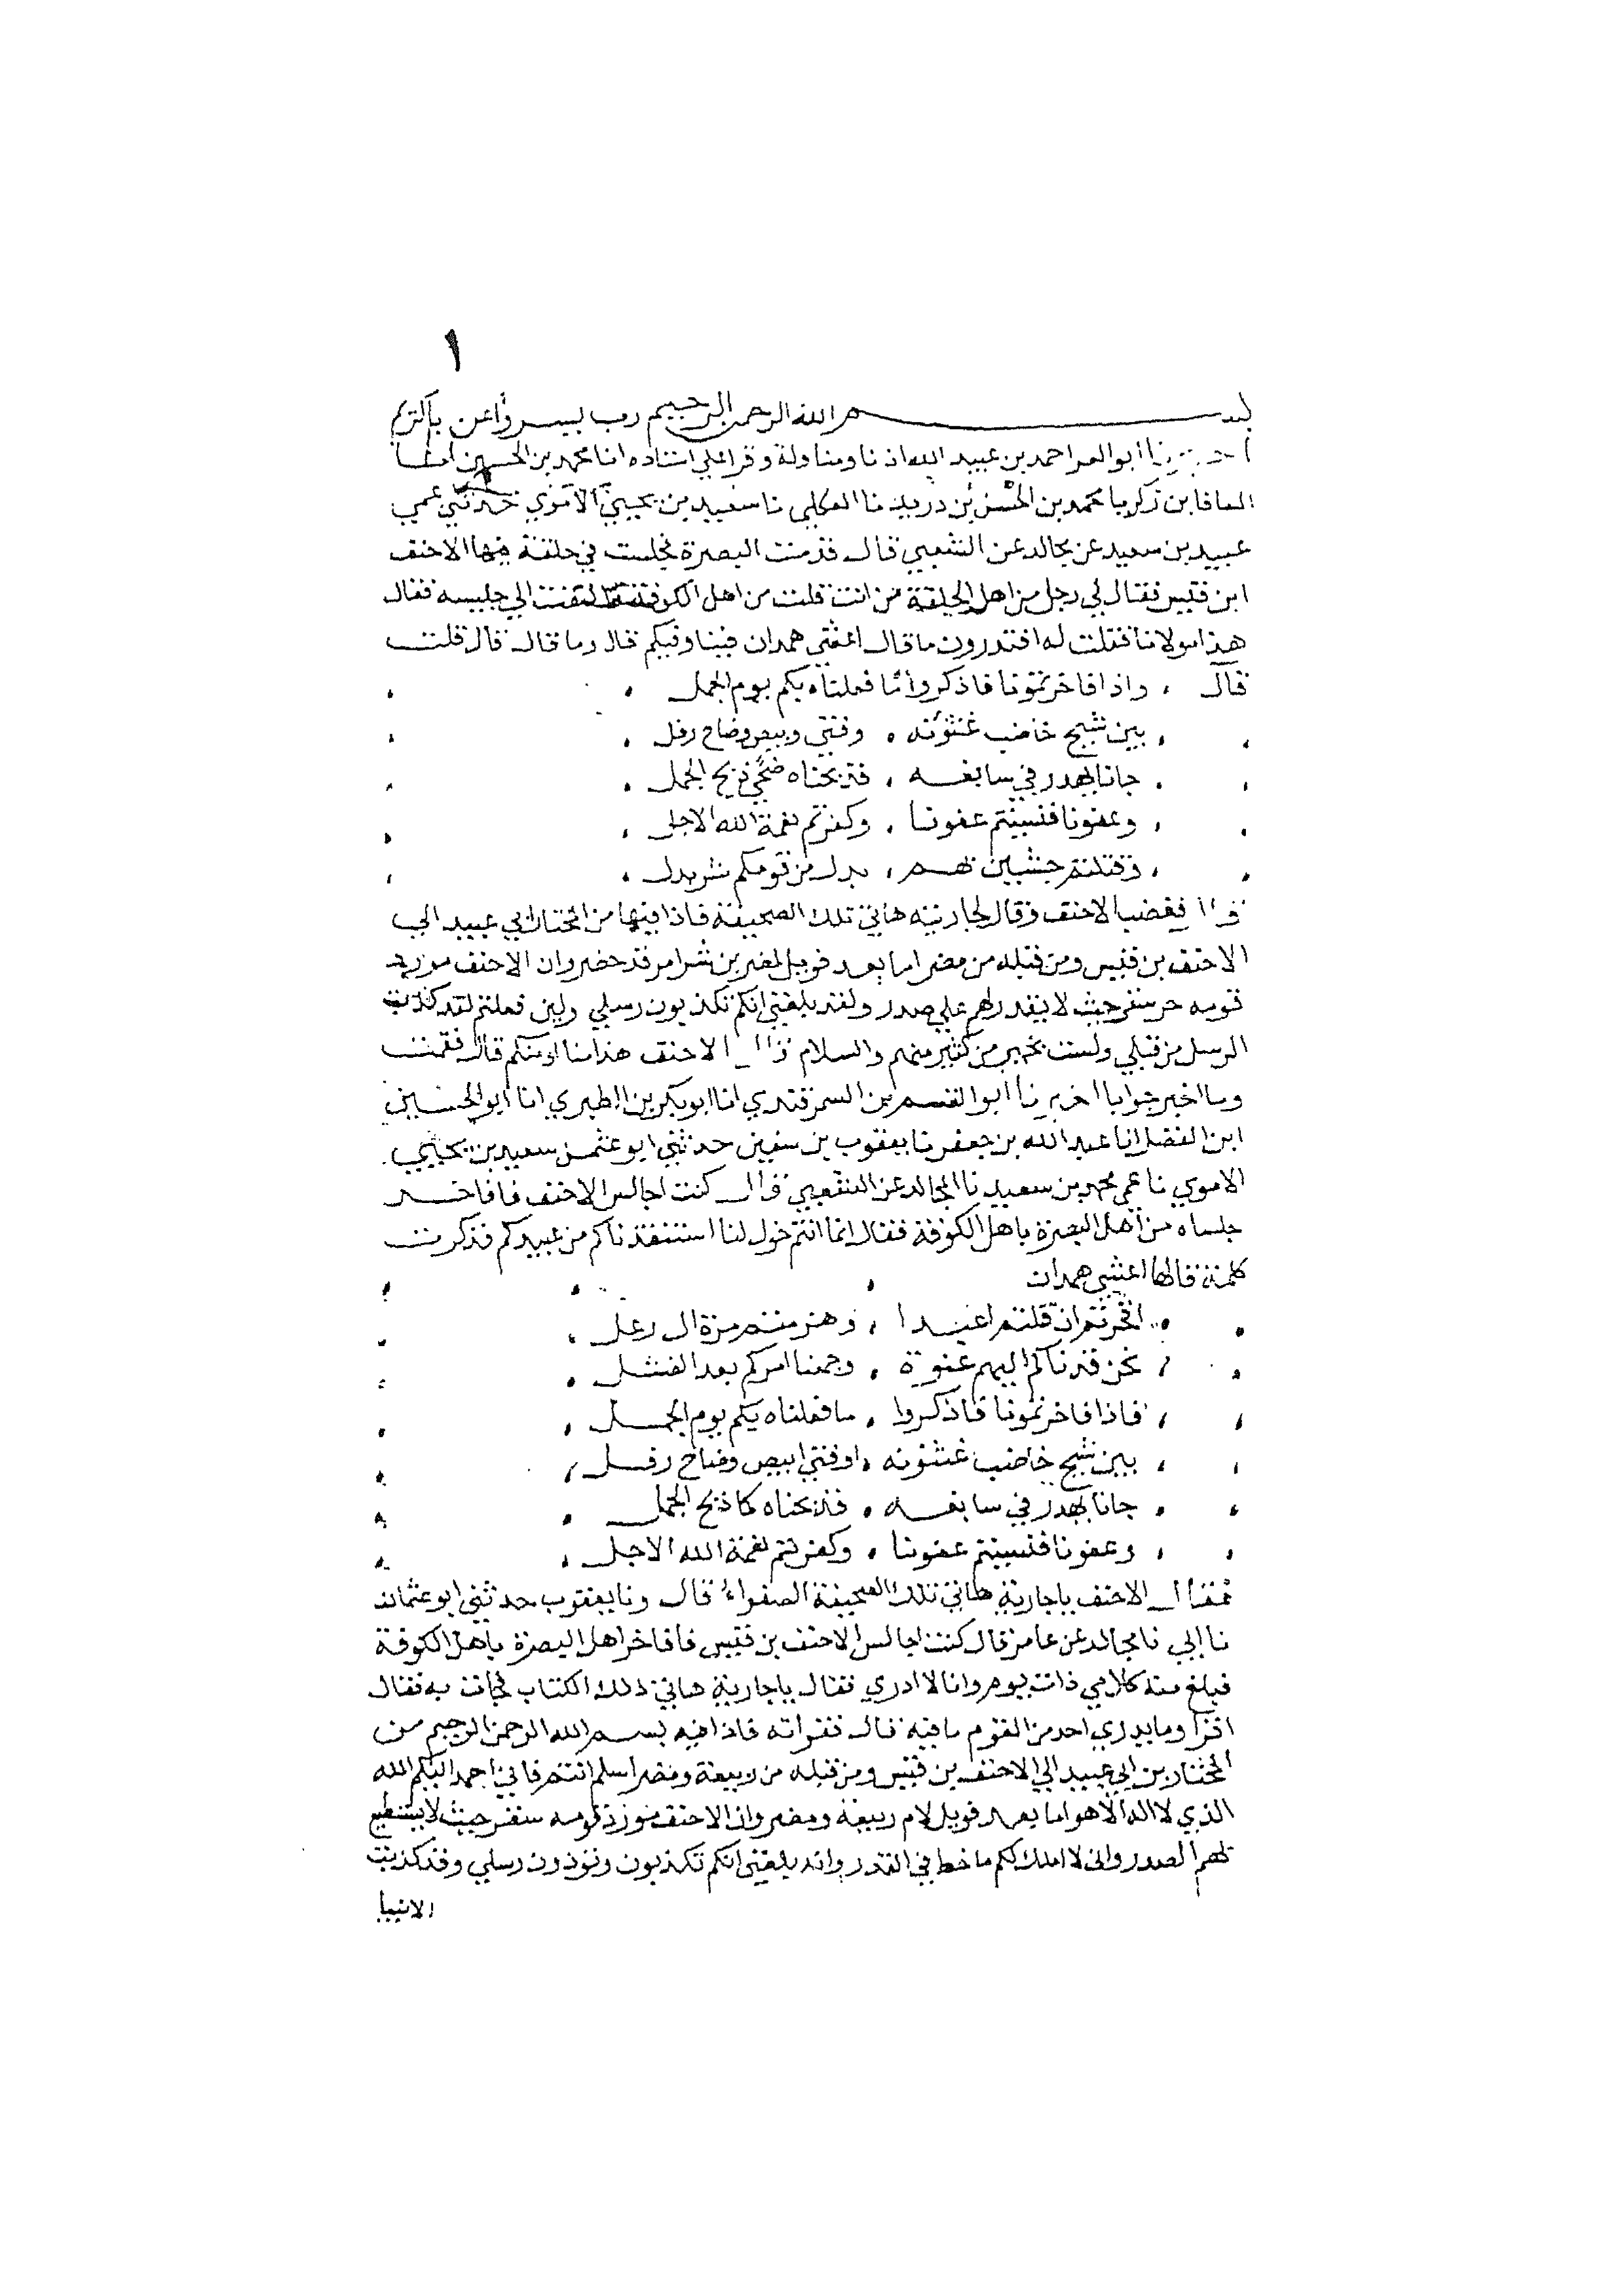 ١
بسم الله الرحمن الرحيم رب يسر وأعن يا كريم
ابو العز احمد بن عبيد الله اذنا ومناولة وقرا علي اسناده انا محمد بن الحسين انبا
المعافا بن زكريا محمد بن الحسن بن دريد نا العكلي نا سعيد بن يحيى الاموي حدثني عمي
عبيد بن سعيد عن مجالد عن الشعبي قال قدمت البصرة فجلست في حلقة فيها الاحنف
ابن قيس فقال لي رجل من اهل الحلقة من انت قلت من اهل الكوفة التفت الي جليسه فقال
هذا مولانا فقلت له افتدرون ما قال اعشي همدان فينا وفيكم قال وما قال قال قلت
قال ، واذا فاخرتمونا فاذكروا ما فعلناه بكم يوم الجمل ،
، بين شيخ خاضب عثنونه ، وفتي وبيض وضاح رفل ،
، جانا يهدر في سابغه ، فذبحناه ضحي ذبح الجمل ،
، وعفونا فنسيتم عفونا ، وكفرتم نعمة الله الاجل ،
، وقتلتم بهم ، بدل من قومكم شر بدل ،
فغضب الاحنف وقال لجاريته هاتي تلك الصحيفة فاذا فيها من المختار ابي عبيد الي
الاحنف بن قيس ومن قبله من مضر اما بعد فويل لمضر من شر امر قد حضر وان الاحنف مورد
قومه حر سقر حيث لا يقدر لهم علي صدر ولقد بلغني انكم تكذبون رسلي ولين فعلتم لقد كذبت
الرسل من قبلي ولست بخير من كثير منهم والسلام قال الاحنف هذا منا او منكم قال فقمت
وما اخير جوابا اخبرنا ابو القسم بن السمرقندي انا ابو بكر بن الطبري انا ابو الحسين
ابن الفضل انا عبد الله بن جعفر نا يعقوب بن سفين حدثني ابو عثمن سعيد بن يحيي
الاموي نا عمي محمد بن سعيد نا المجالد عن الشعبي قال كنت اجالس الاحنف فافاخر
جلساه من اهل البصرة باهل الكوفة فقال انما انتم خول لنا استنقذناكم من عبيدكم فذكرت
كلمة قالها اعشي همدان
، افخرتم ان قلتم اعبدا ، وهزمتم مرة ال رعل ،
، نحن قدناكم اليهم عنوة ، وجمعنا امركم بعد الفشل ،
، فاذا فاخرتمونا فاذكروا ، ما فعلناه بكم يوم الجمل ،
، بين شيخ خاضب عثنونه ، اوفتي ابيض وضاح رفل ،
، جانا يهدر في سابغه ، فذبحناه كما ذبح الجمل ،
، وعفونا فنسيتم عفونا ، وكفرتم نعمة الله الاجل ،
فقال الاحنف يا جارية هاتي تلك الصحيفة الصفراء قال ونا يعقوب حدثني ابو عثمان
نا ابي نا مجالد عن عامر قال كنت اجالس الاحنف بن قيس فافاخر اهل البصرة باهل الكوفة
فبلغ منه كلامي ذات يوم وانا لا ادري فقال يا جارية هاتي ذلك الكتاب فجات به فقال
اقرا وما يدري احد من القوم ما فيه قال فقراته فاذا فيه بسم الله الرحمن الرحيم من
المختار بن ابي عبيد الي الاحنف بن قيس ومن قبله من ربيعة ومضر اسلم انتم فاني احمد اليكم الله
الذي لا اله الا هو اما بعد فويل لام ربيعة ومضر وان الاحنف مورد قومه سقر حيث لا يستطيع
لهم الصدر واني لا املك لكم ما خط في القدر وانه بلغني انكم تكذبون وتوذون رسلي وقد كذبت
الانبيا